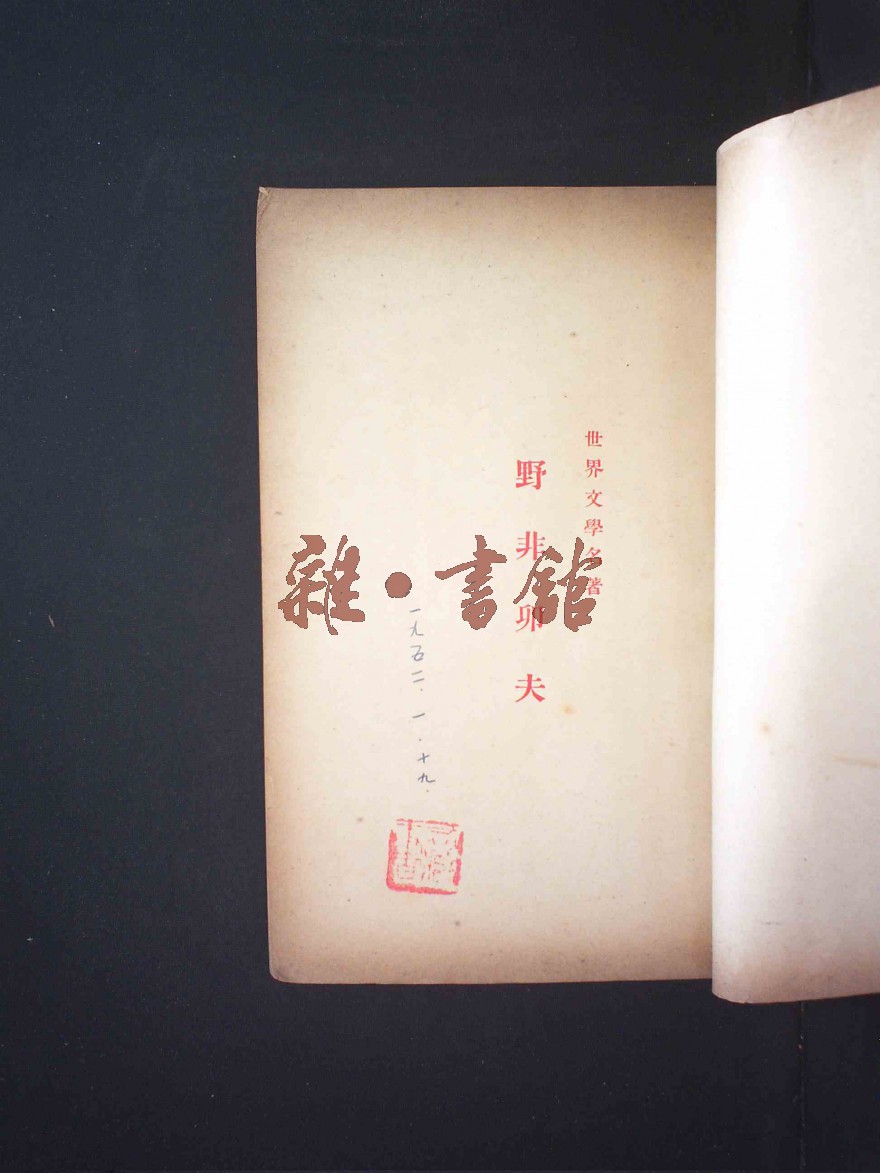 世界文學名著
野非卯夫
一九五二.一.十九.
雜·書館